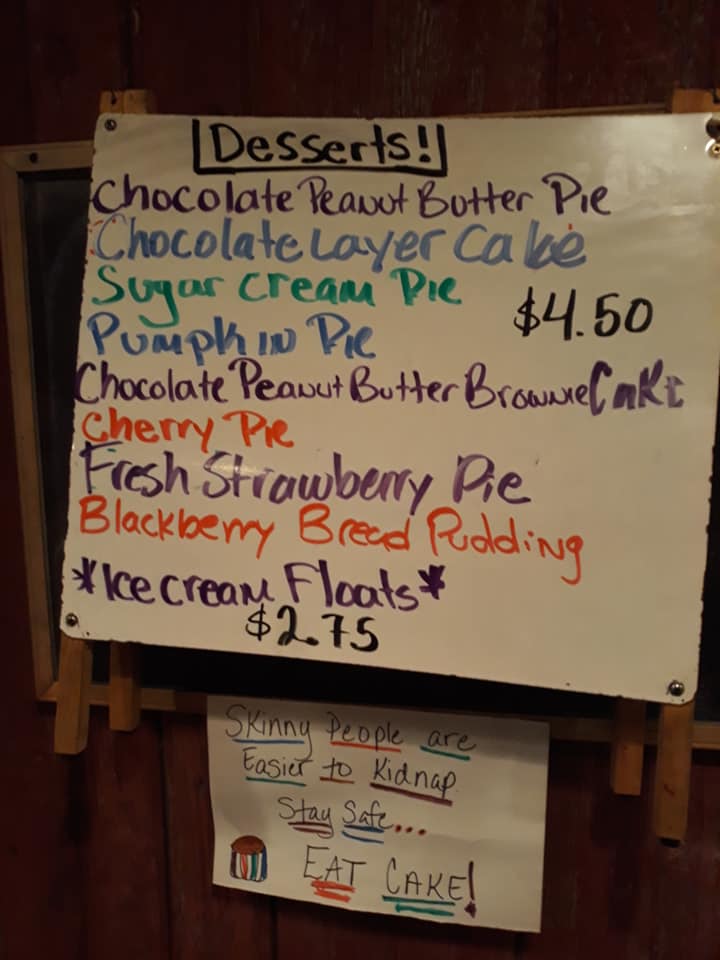 Desserts!
Chocolate Peanut Butter Pie
Chocolate Layer Cake
Sugar Cream Pie
$4.50
Pumpkin Pie
Chocolate Peanut Butter Brownie Cake
Cherry Pie
Fresh Strawberry Pie
Blackberry Bread Pudding
*Ice cream Floats*
$2.75
Skinny People are
Easier to Kidnap
Stay Safe...
EAT CAKE!